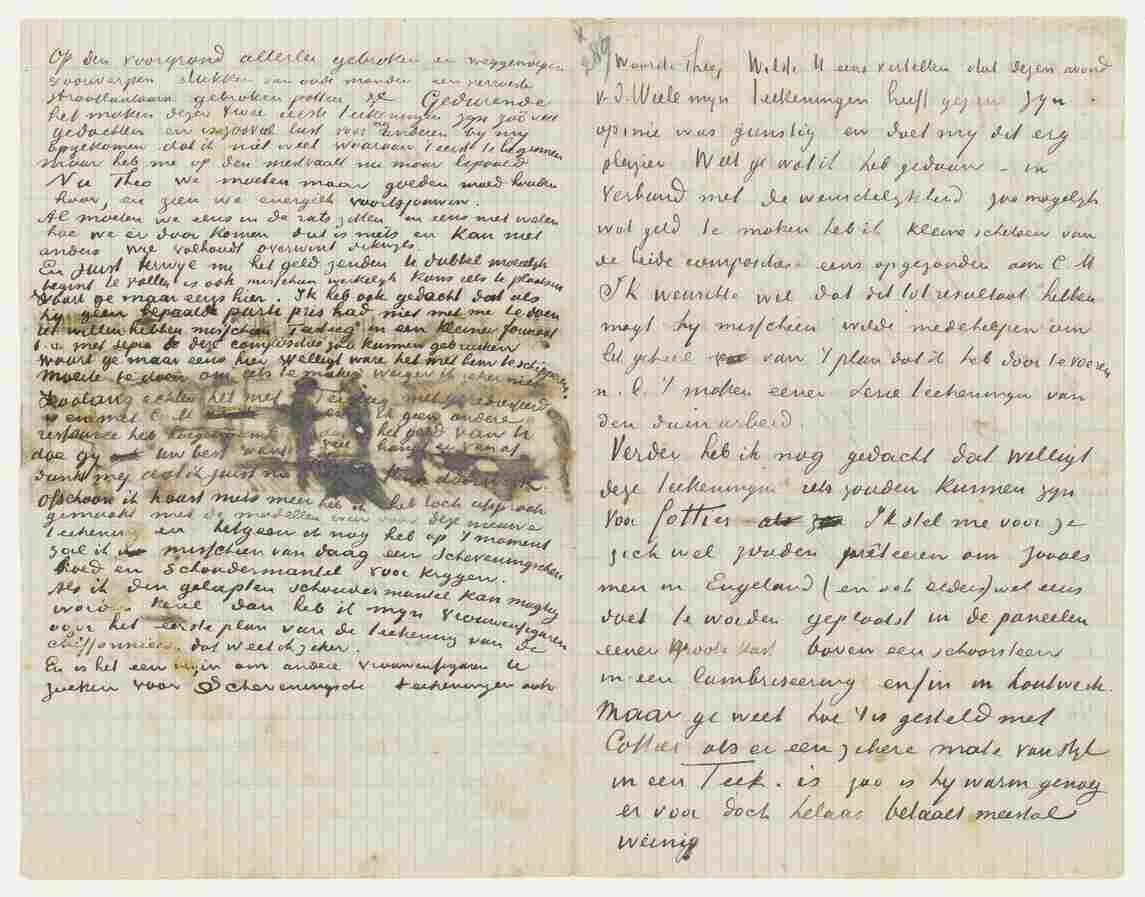 Op den voorgrond allerlei gebroken en weggeworpen
voorwerpen stukken van oude manden een verroeste
straatlantaarn gebroken potten &c Gedurende
het maken dezer twee eerste teekeningen zyn zoo veel
gedachten en zooveel lust voor anderen by my
opgekomen dat ik niet weet waaraan 't eerst te beginnen
maar heb me op den mestvaalt nu maar bepaald
Nu Theo we moeten maar goeden moed houden
hoor, en zien we energiek voortsjouwen.
Al moeten we eens in de rats zitten en eens niet weten
hoe we er door komen dat is niets en kan niet
anders wie volhoudt overwint
En juist terwyl nu het geld zenden te dubbel moeielyk
begint te vallen is ook misschien werkelyk kans iets te plaatsen
waart ge maar eens hier. Ik heb ook gedacht dat als
hy geen bepaalde parti pris had niet met me te doen
te willen hebben misschien Tersteeg in een kleiner formaat
b.v. met sepia deze composities zou kunnen gebruiken
waart ge maar eens hier wellicht ware het met hem te schipperen
moeite te doen om iets te maken weiger ik zeker niet
Zoolang echter het met Tersteeg niet geredresseerd
is en met C.M. en ik geen andere
ressource heb het geld van U
doe gy uw best want veel hangt er van af
dunkt my dat ik juist nu
Ofschoon ik haast niets meer heb ik toch afspraak
gemaakt met de modellen weer voor deze nieuwe
teekening en hetgeen ik nog heb op 't moment
zal ik misschien van daag een Scheveningschen
hoed en schoudermantel voor krygen.
Als ik den gelapten schoudermantel kan magtig
worden kerel dan heb ik myn vrouwenfiguren
voor het eerste plan van de teekening van de
chiffonniers, dat weet ik zeker.
En is het een myn om andere vrouwenfiguren te
zoeken voor Scheveningsche teekeningen ook
Waarde Theo, Wilde U eens vertellen dat dezen avond
v.d. Weele myn teekeningen heeft gezien zyn
opinie was gunstig en doet my dit erg
plezier Weet ge wat ik heb gedaan – in
verband met de wenschelykheid zoo mogelyk
wat geld te maken heb ik kleine schetsen van
de beide composities eens opgezonden aan C.M
Ik wenschte wel dat dit tot resultaat hebben
mogt hy misschien wilde medehelpen om
het geheel van 't plan dat ik heb door te voeren
n.l. 't maken eener serie teekeningen van
den duinarbeid.
Verder heb ik nog gedacht dat welligt
deze teekeningen iets zouden kunnen zyn
voor Cottier Ik stel me voor ze
zich wel zouden prêteeren om zooals
men in Engeland (en ook elders) wel eens
doet te worden geplaatst in de paneelen
eener groote kast boven een schoorsteen
in een lambriseering en/in in houtwerk.
Maar ge weet hoe 't is gesteld met
Cottier als er een zekere mate van styl
in een Teek. is zoo is hy warm genoeg
er voor doch helaas betaalt meestal
weinig